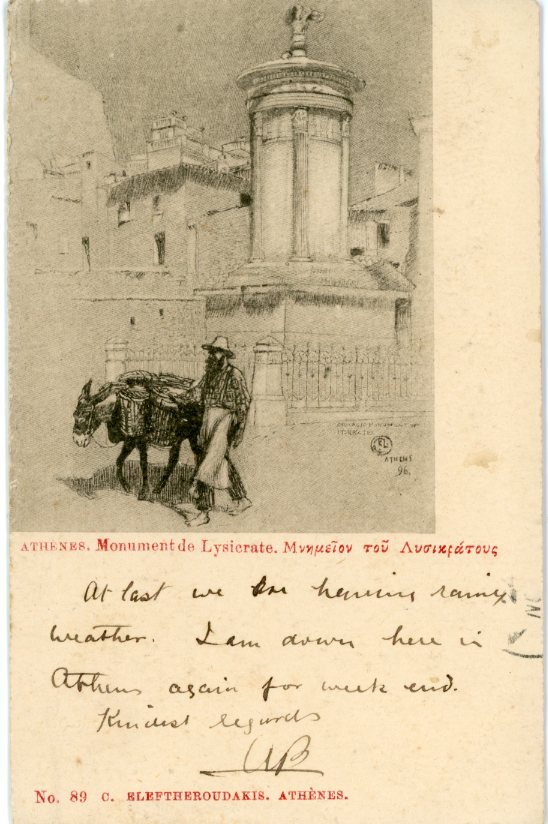 ATHENS
96.
ATHÈNES. Monument de Lysicrate. Μνημεῖον τοῦ Λυσικράτους
At last we are having rainy
weather. I am down here in
Athens again for week end.
Kindest regards
No. 89 C. ELEFTHEROUDAKIS. ATHÈNES.